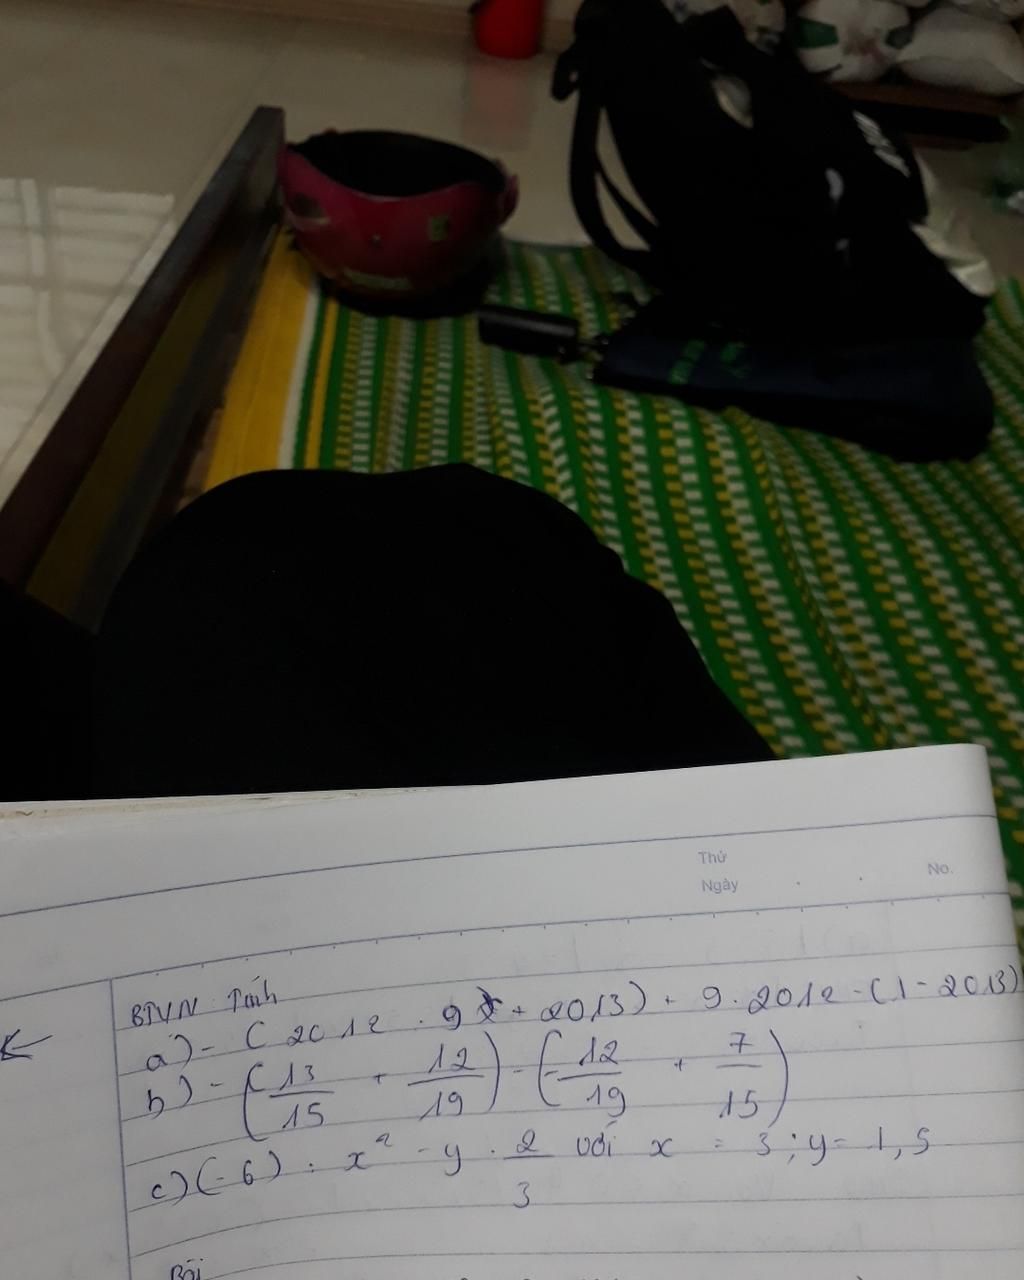 Thứ
Ngày . . No.
BTVN Tính
a) - (2012 . 9 + 2013) + 9 . 2012 - (1 - 2013)
b) - (13/15 + 12/19) - (-12/19 + 7/15)
c) (-6) : x² - y . 2/3 với x = 3 ; y = 1,5
Bài